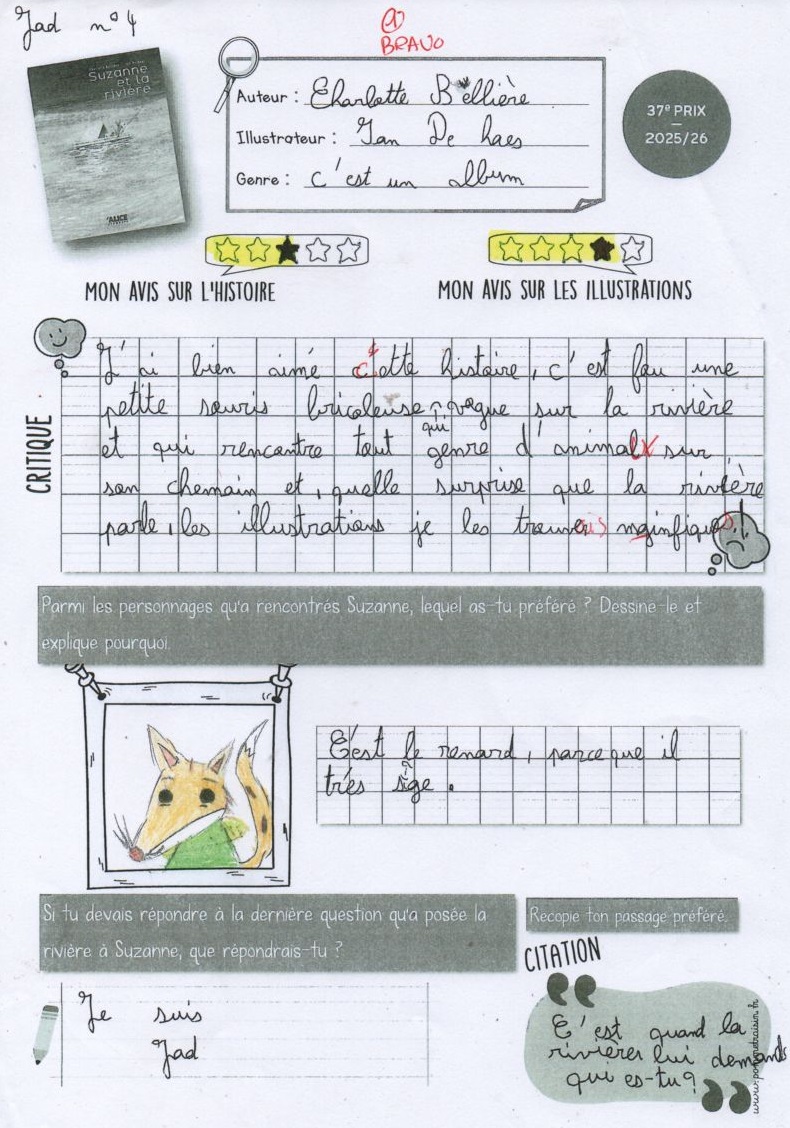 Jad n°4
A
BRAVO
Suzanne
et la
rivière
ALICE
Auteur : Charlotte Bellière
Illustrateur : Ian De Haes
Genre : c'est un album
37e PRIX
2025/26
MON AVIS SUR L'HISTOIRE
MON AVIS SUR LES ILLUSTRATIONS
CRITIQUE
J'ai bien aimé cette histoire, c'est fau une
petite souris bricoleuse qui vogue sur la rivière
et qui rencontre tout genre d'animalx sur
son chemain et, quelle surprise que la rivière
parle, les illustrations je les trouve mginfiques!
Parmi les personnages qu'a rencontrés Suzanne, lequel as-tu préféré ? Dessine-le et
explique pourquoi.
C'est le renard, parce que il
très sige.
Si tu devais répondre à la dernière question qu'a posée la
rivière à Suzanne, que répondrais-tu ?
Je suis
Jad
Recopie ton passage préféré.
CITATION
C'est quand la
rivières lui demands
qui es-tu?